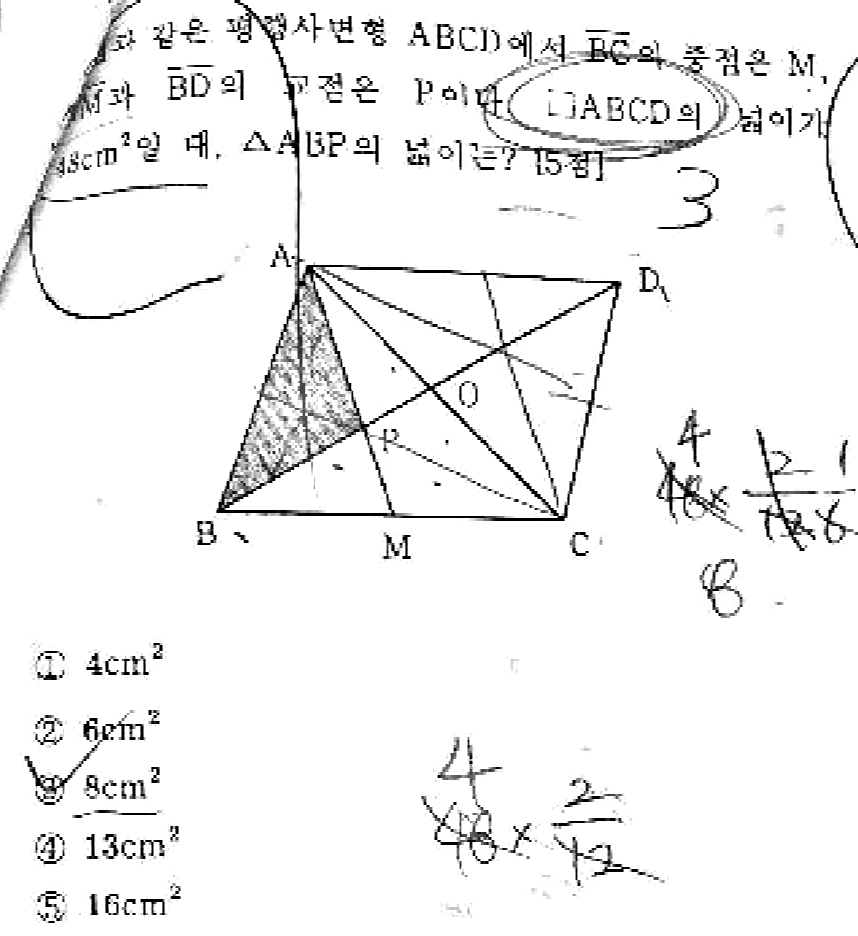 같은 평행사변형 ABCD에서 BC의 중점은 M,
M과 BD의 교점은 P이다. □ABCD의 넓이가
48cm²일 때, △ABP의 넓이는? [5점]
3
A
D
O
P
B
M
C
4
48×
2 1
12 6
8
① 4cm²
② 6cm²
③ 8cm²
④ 13cm²
⑤ 16cm²
4
48 × 2/12